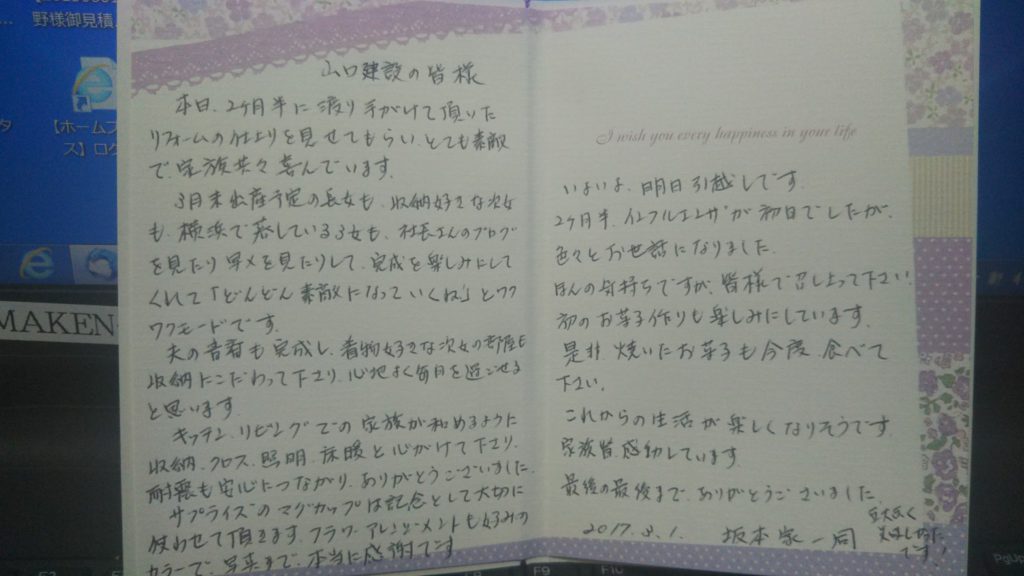 野様御見積.
タ
【ホームス
ス】ログ
MAKEN
山口建設の皆様
本日、2ヶ月半に渡り手がけて頂いた
リフォームの仕上りを見せてもらい、とても素敵
で、家族共々喜んでいます。
3月末出産予定の長女も、収納好きな次女
も、横浜で暮している3女も、社長さんのブログ
を見たり写メを見たりして、完成を楽しみにして
くれて「どんどん素敵になっていくね」とワク
ワクモードです。
夫の書斎も完成し、着物好きな次女の部屋も
収納にこだわって下さり、心地よく毎日を過ごせる
と思います。
キッチン、リビングでの家族が和めるように
収納、クロス、照明、床暖と心がけて下さり、
耐震も安心につながり、ありがとうございました。
サプライズのマグカップは記念として大切に
使わせて頂きます。フラワーアレンジメントも好みの
カラーで、写真まで、本当に感謝です
I wish you every happiness in your life
いよいよ、明日引越しです。
2ヶ月半、インフルエンザが初日でしたが、
色々とお世話になりました。
ほんの気持ちですが、皆様で召し上って下さい。
初のお菓子作りも楽しみにしています。
是非、焼いたお菓子も今度、食べて
下さい。
これからの生活が楽しくなりそうです。
家族皆、感動しています。
最後の最後まで、ありがとうございました。
2017.3.1. 坂本家一同
です!
F9
F10
PgUp